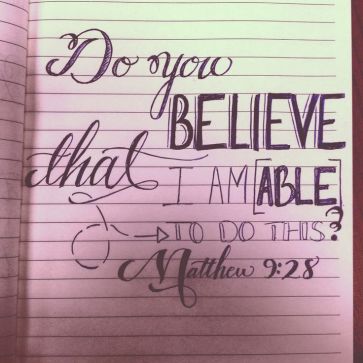 Do you
BELIEVE
that I AM [ABLE]
TO DO THIS?
Matthew 9:28